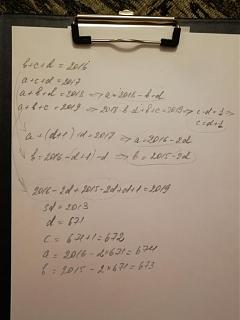 b+c+d = 2016
a+c+d = 2017
a+b+d = 2018 ⟹ a = 2018-b-d
a+b+c = 2019 ⟹ 2018-b-d+b+c=2019 ⟹ c-d=1 ⟹
c=d+1
a+(d+1)+d=2017 ⟹ a=2016-2d
b = 2016-(d+1)-d ⟹ b=2015-2d
2016-2d+2015-2d+d+1=2019
3d=2013
d=671
c = 671+1=672
a = 2016-2×671=674
b = 2015-2×671=673